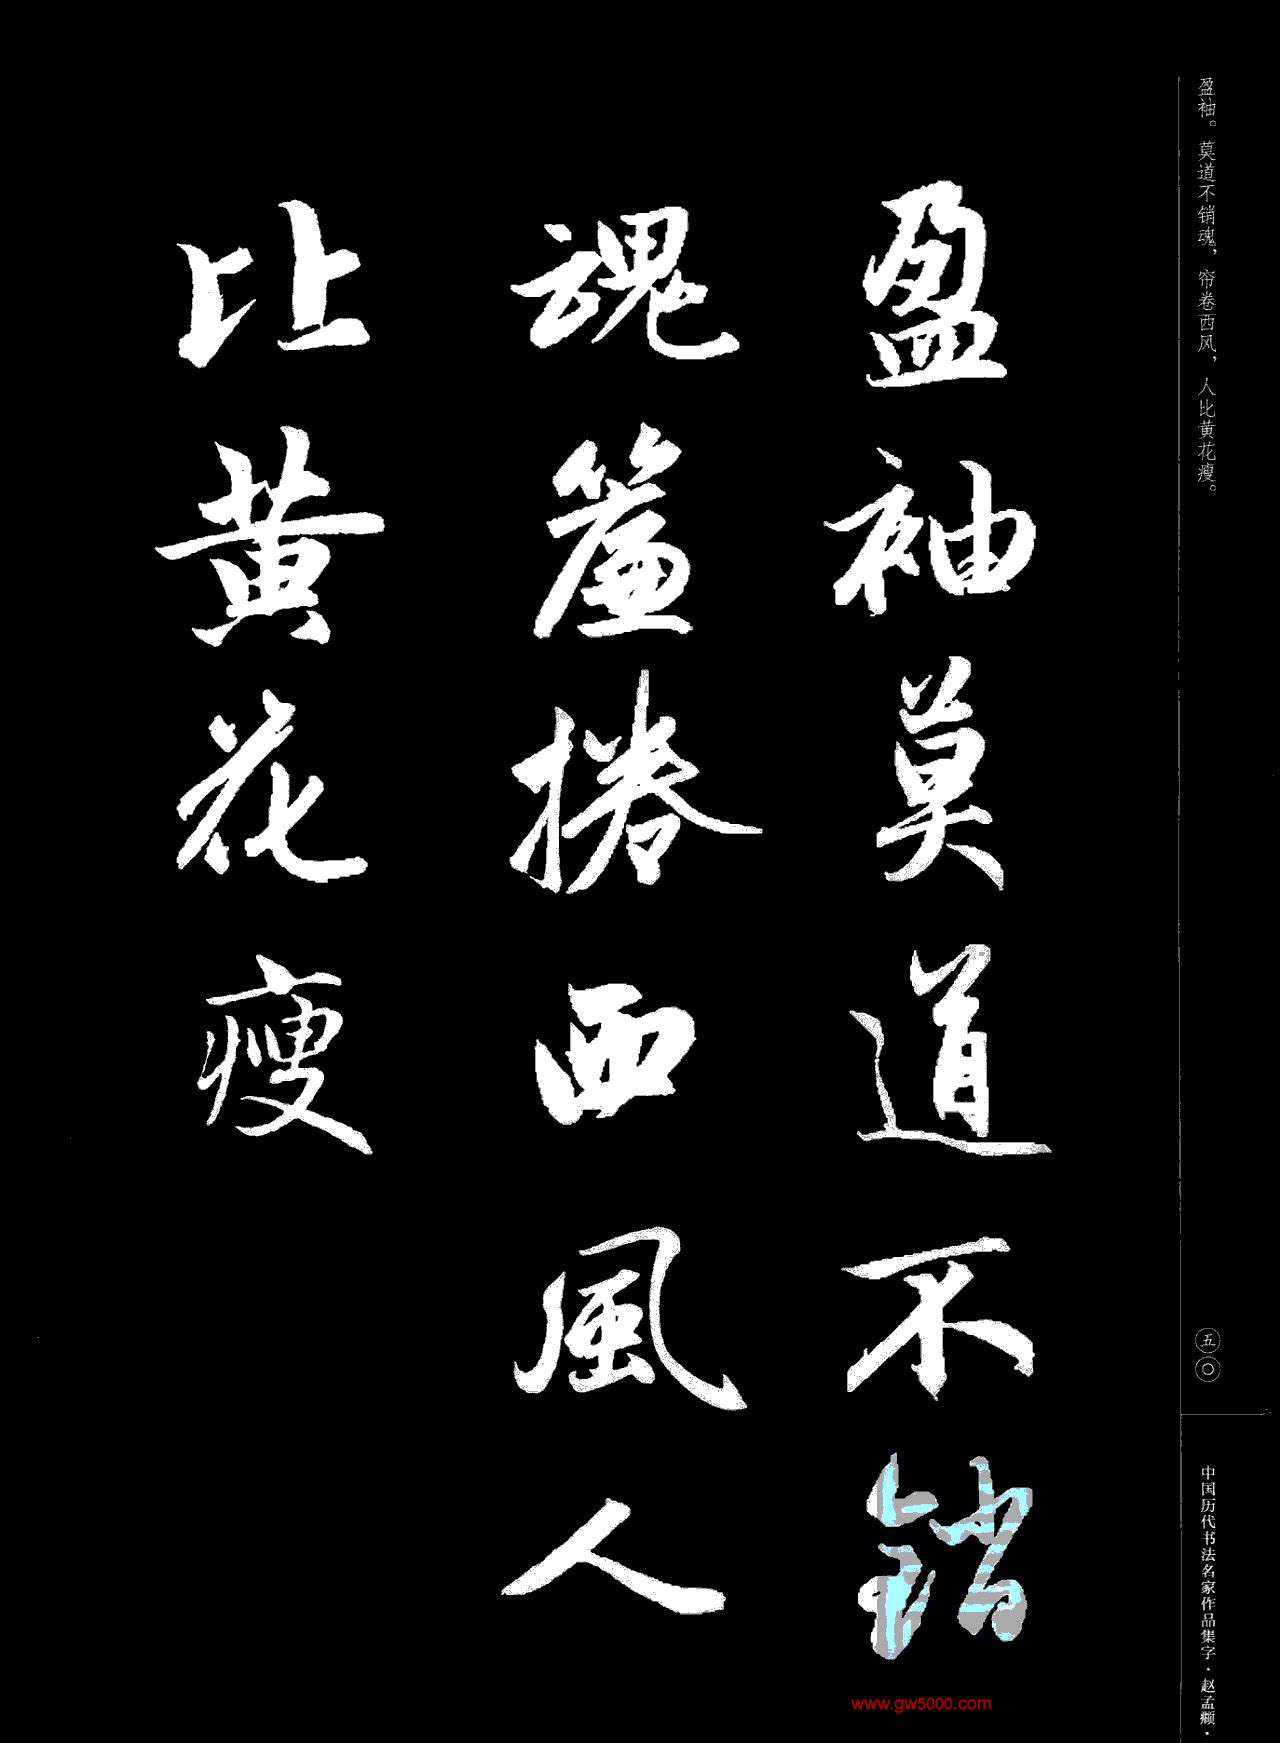 盈袖。莫道不销魂，帘卷西风，人比黄花瘦。
盈袖莫道不銷
魂簾捲西風人
比黄花瘦
五〇
中国历代书法名家作品集字·赵孟頫·
www.gw5000.com